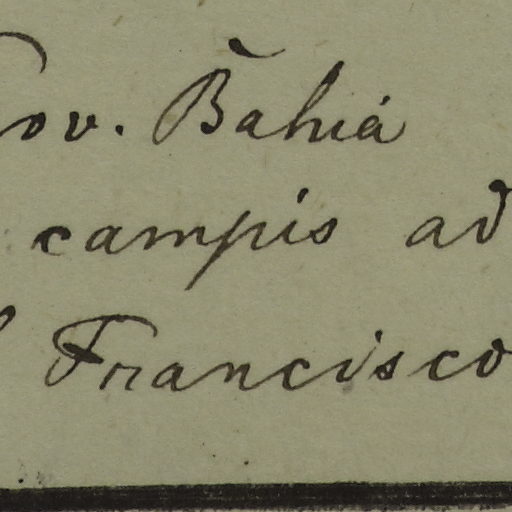 ov. Bahia
campis ad
Francisco